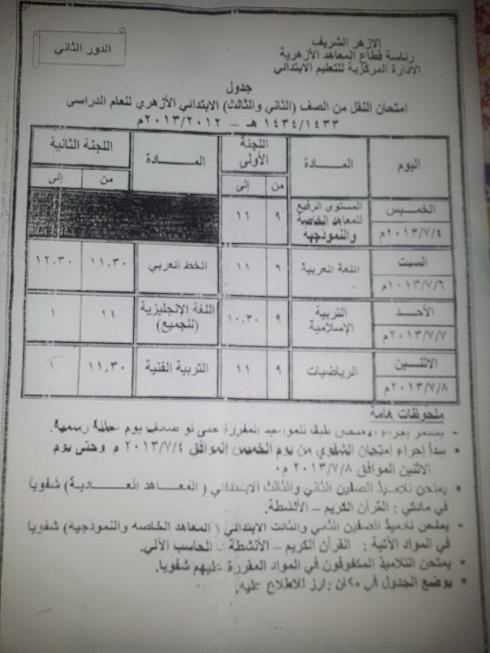 الازهر الشريف
رئاسة قطاع المعاهد الأزهرية
الإدارة المركزية للتعليم الابتدائي
الدور الثاني
جدول
امتحان النقل من الصف (الثاني والثالث) الابتدائي الأزهري للعام الدراسى
١٤٣٤/١٤٣٣ هـ – ٢٠١٣/٢٠١٢م
اليوم المادة اللجنة الأولى المادة اللجنة الثانية
من إلى من إلى
الخميس ٢٠١٣/٧/٤م المستوى الرفيع للمعاهد الخاصة والنموذجيه ٩ ١١
السبت ٢٠١٣/٧/٦م اللغة العربية ٩ ١١ الخط العربي ١١,٣٠ ١٢,٣٠
الأحد ٢٠١٣/٧/٧م التربية الإسلامية ٩ ١٠,٣٠ اللغة الإنجليزية (للجميع) ١١ ١
الاثنين ٢٠١٣/٧/٨م الرياضيات ٩ ١١ التربية الفنية ١١,٣٠ ١
ملحوظات هامة
يستمر إجراء الامتحان طبقا للمواعيد المقررة حتى لو صادف يوم عطلة رسمية.
يبدأ إجراء امتحان الشفوي من يوم الخميس الموافق ٢٠١٣/٧/٤ م وحتى يوم
الاثنين الموافق ٢٠١٣/٧/٨ م.
يمتحن تلاميذ الصفين الثاني والثالث الابتدائي (المعاهد العادية) شفويا
في مادتي : القرآن الكريم – الأنشطة.
يمتحن تلاميذ الصفين الثاني والثالث الابتدائي (المعاهد الخاصه والنموذجيه) شفويا
في المواد الآتية : القرآن الكريم – الأنشطة – الحاسب الآلي.
يمتحن التلاميذ المكفوفون في المواد المقررة عليهم شفويا.
يوضع الجدول في مكان بارز للاطلاع عليه.